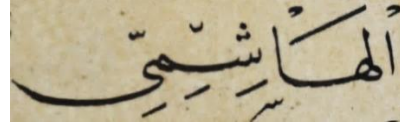 الهَاشِمِيِّ